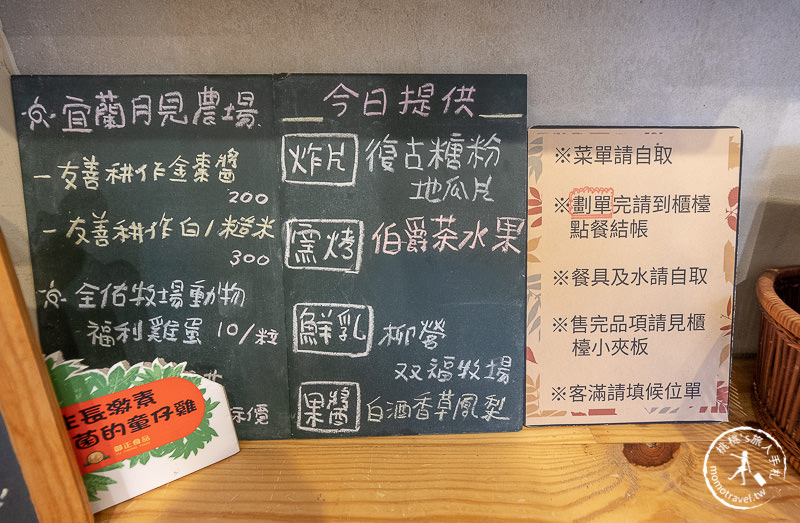 宜蘭月見農場
一友善耕作金棗醬
200
一友善耕作白/糙米
300
全佑牧場動物
福利雞蛋 10/粒
今日提供
炸片 復古糖粉
地瓜片
窯烤 伯爵茶水果
鮮乳 柳營
双福牧場
果醬 白酒香草鳳梨
生長激素
菌的童仔雞
御正食品
※菜單請自取
※劃單完請到櫃檯
點餐結帳
※餐具及水請自取
※售完品項請見櫃
檯小夾板
※客滿請填候位單
momotravel.tw